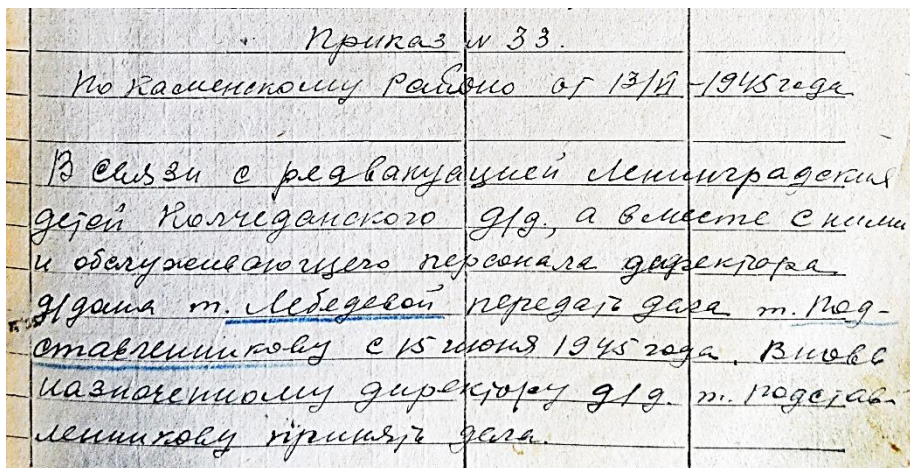 Приказ N 33.
По Каменскому Районо от 13/VI-1945 года
В связи с редвакуацией Ленинградских
детей Колчеданского д/д., а вместе с ними
и обслуживающего персонала директора
д/дома т. Лебедевой передать дела т. Под-
ставленникову с 15 июня 1945 года. Вновь
назначенному директору д/д. т. Подстав-
ленникову принять дела.